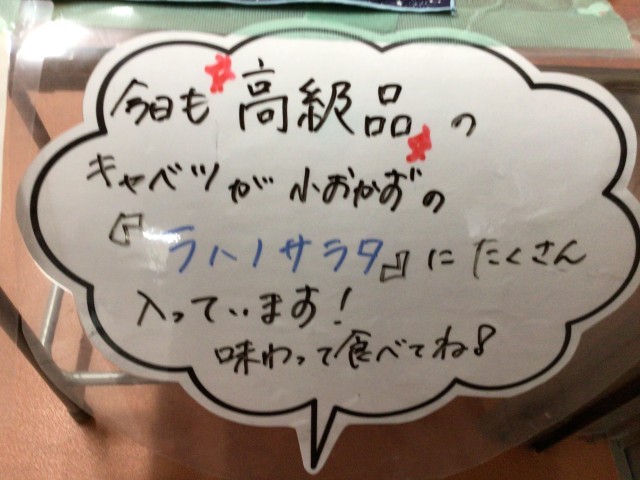 今日も高級品の
キャベツが小おかずの
『ラハノサラタ』にたくさん
入っています!
味わって食べてね!